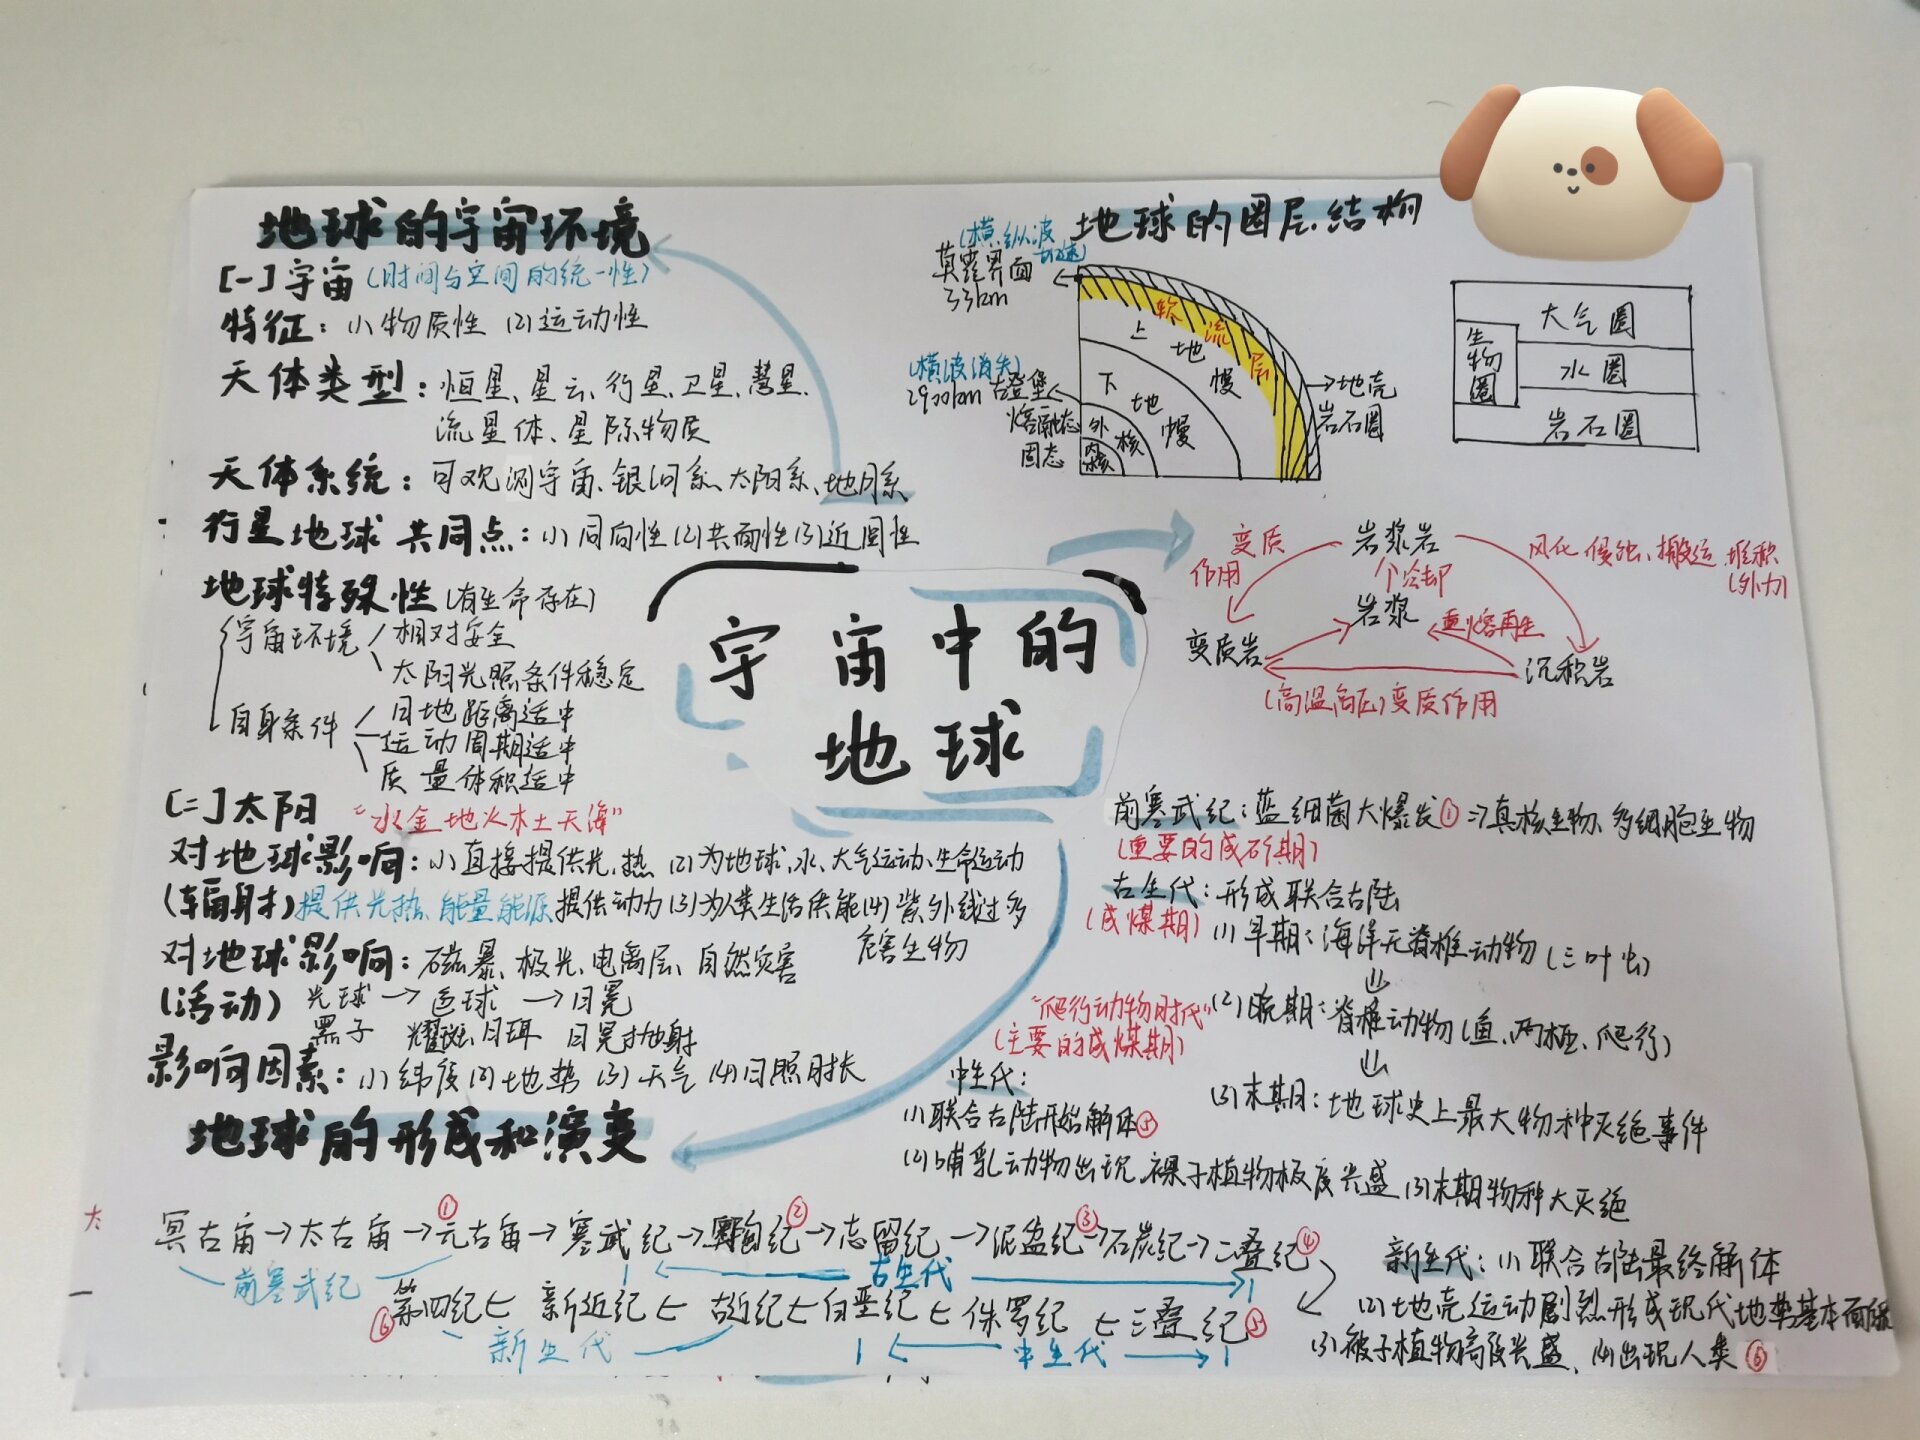 地球的宇宙环境
[一]宇宙(时间与空间的统一性)
特征：(1)物质性 (2)运动性
天体类型：恒星、星云、行星、卫星、彗星、
流星体、星际物质
天体系统：可观测宇宙、银河系、太阳系、地月系
行星地球 共同点：(1)同向性(2)共面性(3)近圆性
地球特殊性(有生命存在)
宇宙环境
相对安全
太阳光照条件稳定
自身条件
日地距离适中
运动周期适中
质量体积适中
[二]太阳 "水金地火木土天海"
对地球影响：(1)直接提供光、热 (2)为地球、水、大气运动、生命运动
(辐射)提供光热、能量能源 提供动力(3)为人类生活供能(4)紫外线过多
危害生物
对地球影响：磁暴、极光、电离层、自然灾害
(活动) 光球→色球→日冕
黑子 耀斑、日珥 日冕抛射
影响因素：(1)纬度(2)地势 (3)天气 (4)日照时长
宇宙中的
地球
地球的圈层结构
(横、纵波
加速)
莫霍界面
33km
(横波消失)
2900km 古登堡
熔融态
固态
软流层
上地幔
下地幔
外核
内核
地壳
岩石圈
大气圈
生物圈
水圈
岩石圈
变质
作用
岩浆岩
个冷却
岩浆
风化、侵蚀、搬运、堆积
(外力)
重熔再生
变质岩
沉积岩
(高温高压)变质作用
前寒武纪：蓝细菌大爆发①⇒真核生物、多细胞生物
(重要的成矿期)
古生代：形成联合古陆
(成煤期)
(1)早期：海洋无脊椎动物(三叶虫)
(2)晚期：脊椎动物(鱼、两栖、爬行)
(3)末期：地球史上最大物种灭绝事件
"爬行动物时代"
(主要的成煤期)
中生代：
(1)联合古陆开始解体⑤
(2)哺乳动物出现、裸子植物极度兴盛 (3)末期物种大灭绝
新生代：(1)联合古陆最终解体
(2)地壳运动剧烈形成现代地势基本面貌
(3)被子植物高度兴盛、(4)出现人类⑥
地球的形成和演变
冥古宙→太古宙→元古宙①→寒武纪→奥陶纪②→志留纪→泥盆纪③→石炭纪→二叠纪④
前寒武纪
古生代
⑥第四纪←新近纪←古近纪←白垩纪←侏罗纪←三叠纪⑤
新生代
中生代